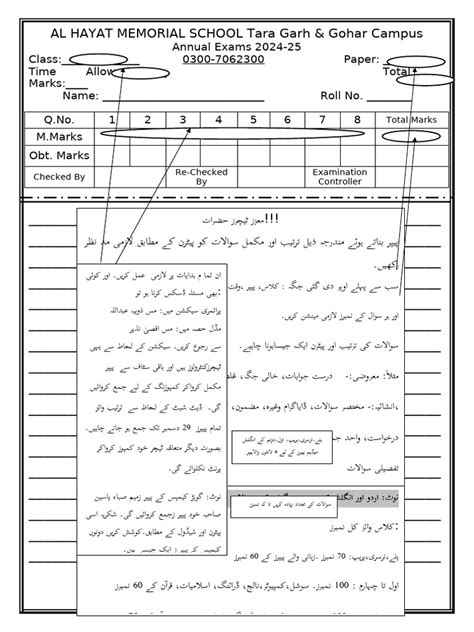 AL HAYAT MEMORIAL SCHOOL Tara Garh & Gohar Campus
Annual Exams 2024-25
Class: 0300-7062300 Paper:
Time Allow Total
Marks:
Name: Roll No.
Q.No. 1 2 3 4 5 6 7 8 Total Marks
M.Marks
Obt. Marks
Checked By Re-Checked By Examination Controller
معزز ٹیچرز حضرات!!!
پیپر بناتے ہوئے مندرجہ ذیل ترتیب اور مکمل سوالات کو پیٹرن کے مطابق لازمی مد نظر
رکھیں۔
سب سے پہلے اوپر دی گئی جگہ : کلاس، پیپر، وقت
اور ہر سوال کے نمبرز لازمی مینشن کریں۔
سوالات کی ترتیب اور پیٹرن ایسا ہونا چاہیے۔
مثلاً: معروضی:- درست جوابات، خالی جگہ،
انشائیہ:- مختصر سوالات، ڈایاگرام وغیرہ، مضمون،
درخواست، واحد جمع
تفصیلی سوالات
نوٹ: اردو اور انگلش
کلاس وائز کل نمبرز:
پلے،نرسری،پریپ: 70 نمبرز ۔زبانی والے پیپرز کے 60 نمبرز
اول تا چہارم : 100 نمبرز۔ سوشل،کمپیوٹر،نالج، ڈرائنگ، اسلامیات، قرآن کے 60 نمبرز
ان تمام ہدایات پر لازمی عمل کریں۔ اور کوئی
بھی مسئلہ ڈسکس کرنا ہو تو:
پرائمری سیکشن میں: مس ذوبیہ عبداللہ
مڈل حصہ میں: مس اقصیٰ نذیر
سے رجوع کریں۔ سیکشن کے لحاظ سے یہی
ٹیچرزکنٹرولرز ہیں اور باقی سٹاف سے پیپر
مکمل کرواکر کمپوزنگ کے لیے جمع کروائیں
گی۔ ڈیٹ شیٹ کے لحاظ سے ترتیب وائز
تمام پیپرز 29 دسمبر تک جمع کروا دیں۔
بصورت دیگر متعلقہ ٹیچر خود کمپوز کرواکر
پرنٹ نکلوائے گی۔
نوٹ: گوہر کیمپس کے پیپر زمیم صباء یاسین
صاحبہ خود پیپر زجمع کروائیں گی۔ شکریہ اسی
پیٹرن اور شیڈول کے مطابق۔کوشش کریں دونوں
پلے،نرسری،پریپ، اول،دوئم کے انگلش
میڈیم پیپرز کے لیے 4 لائنوں والاپیپر
سوالات کی تعداد زیادہ کریں تا کہ نمبرز